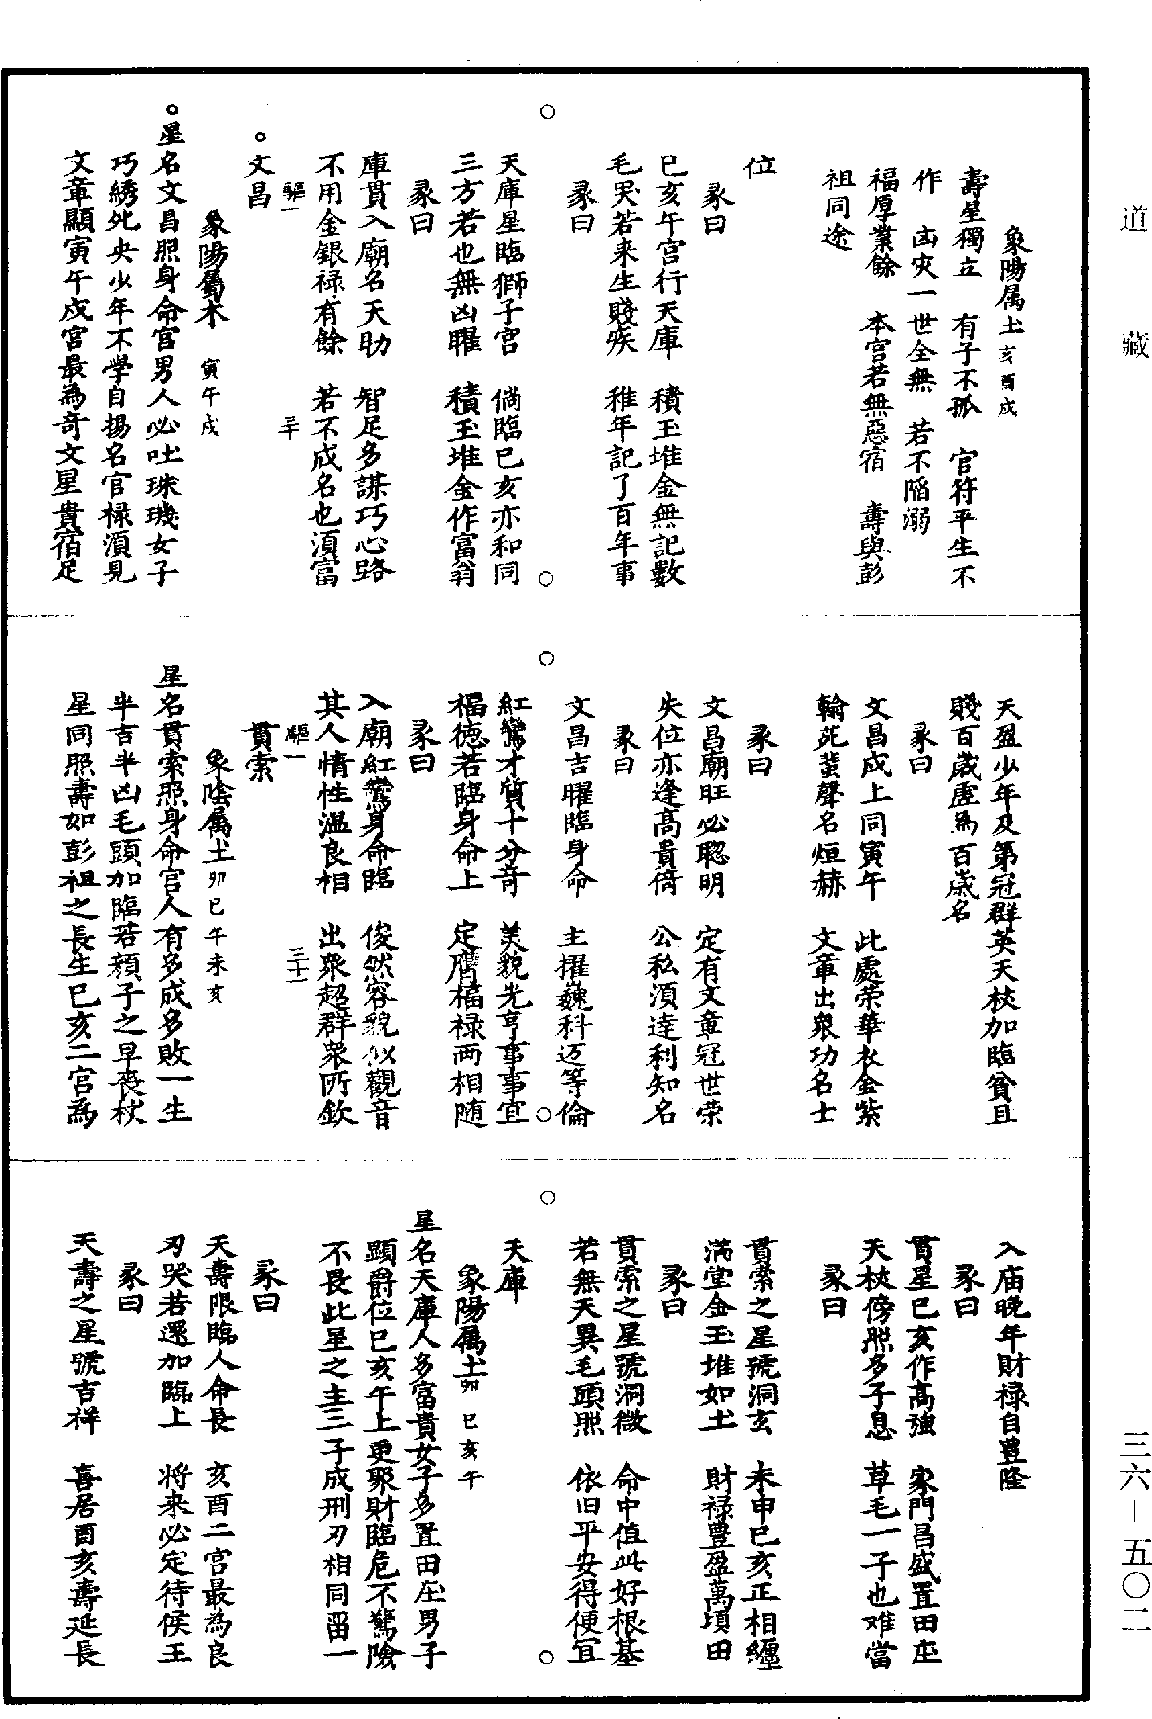 道藏
象陽属土 亥酉戌
壽星獨立 有子不孤 官符平生不
作 凶灾一世全無 若不陷溺
福厚業餘 本宮若無惡宿 壽與彭
祖同途
位
彖曰
巳亥午宮行天庫 積玉堆金無記數
毛哭若来生賤疾 稚年記了百年事
彖曰
天庫星臨獅子宮 倘臨巳亥亦和同
三方若也無凶曜 積玉堆金作富翁
彖曰
庫貫入廟名天助 智足多謀巧心路
不用金銀禄有餘 若不成名也湏富
驅一 三十
○文昌
象陽屬木 寅午戌
○星名文昌照身命宮男人必吐珠璣女子
巧綉死央少年不學自揚名官禄湏見
文章顯寅午戌宮最為奇文星貴宿足
天盈少年及第冠群英天杖加臨貧且
賤百歲虛為百歲名
彖曰
文昌戌上同寅午 此處荣華衣金紫
翰苑蜚聲名烜赫 文章出衆功名士
彖曰
文昌廟旺必聰明 定有文章冠世荣
失位亦逢高貴倚 公私湏達利知名
彖曰
文昌吉曜臨身命 主擢巍科迈等倫
紅鸞才質十分奇 美貌先亨事事宜
福德若臨身命上 定膺福禄两相随
彖曰
入廟紅鸞身命臨 俊然容貌似觀音
其人情性溫良相 出衆超群衆所欽
驅一 三十一
貫索
象陰属土 卯巳午未亥
星名貫索照身命宮人有多成多敗一生
半吉半凶毛頭加臨若顏子之早喪杖
星同照壽如彭祖之長生巳亥二宮為
入庙晚年財禄自豊隆
彖曰
貫星巳亥作高強 家門昌盛置田庄
天杖傍照多子息 草毛一子也难當
彖曰
貫索之星號洞玄 未申巳亥正相纏
滿堂金玉堆如土 財禄豊盈萬頃田
彖曰
貫索之星號洞微 命中值此好根基
若無天異毛頭照 依旧平安得便宜
天庫
象陽属土 卯巳亥午
星名天庫人多富貴女子多置田庄男子
顕爵位巳亥午上更聚財臨危不驚險
不長此星之主三子成刑刃相同留一
彖曰
天壽限臨人命長 亥酉二宮最為良
刃哭若還加臨上 将来必定待侯王
彖曰
天壽之星號吉祥 喜居酉亥壽延長
三六—五〇二